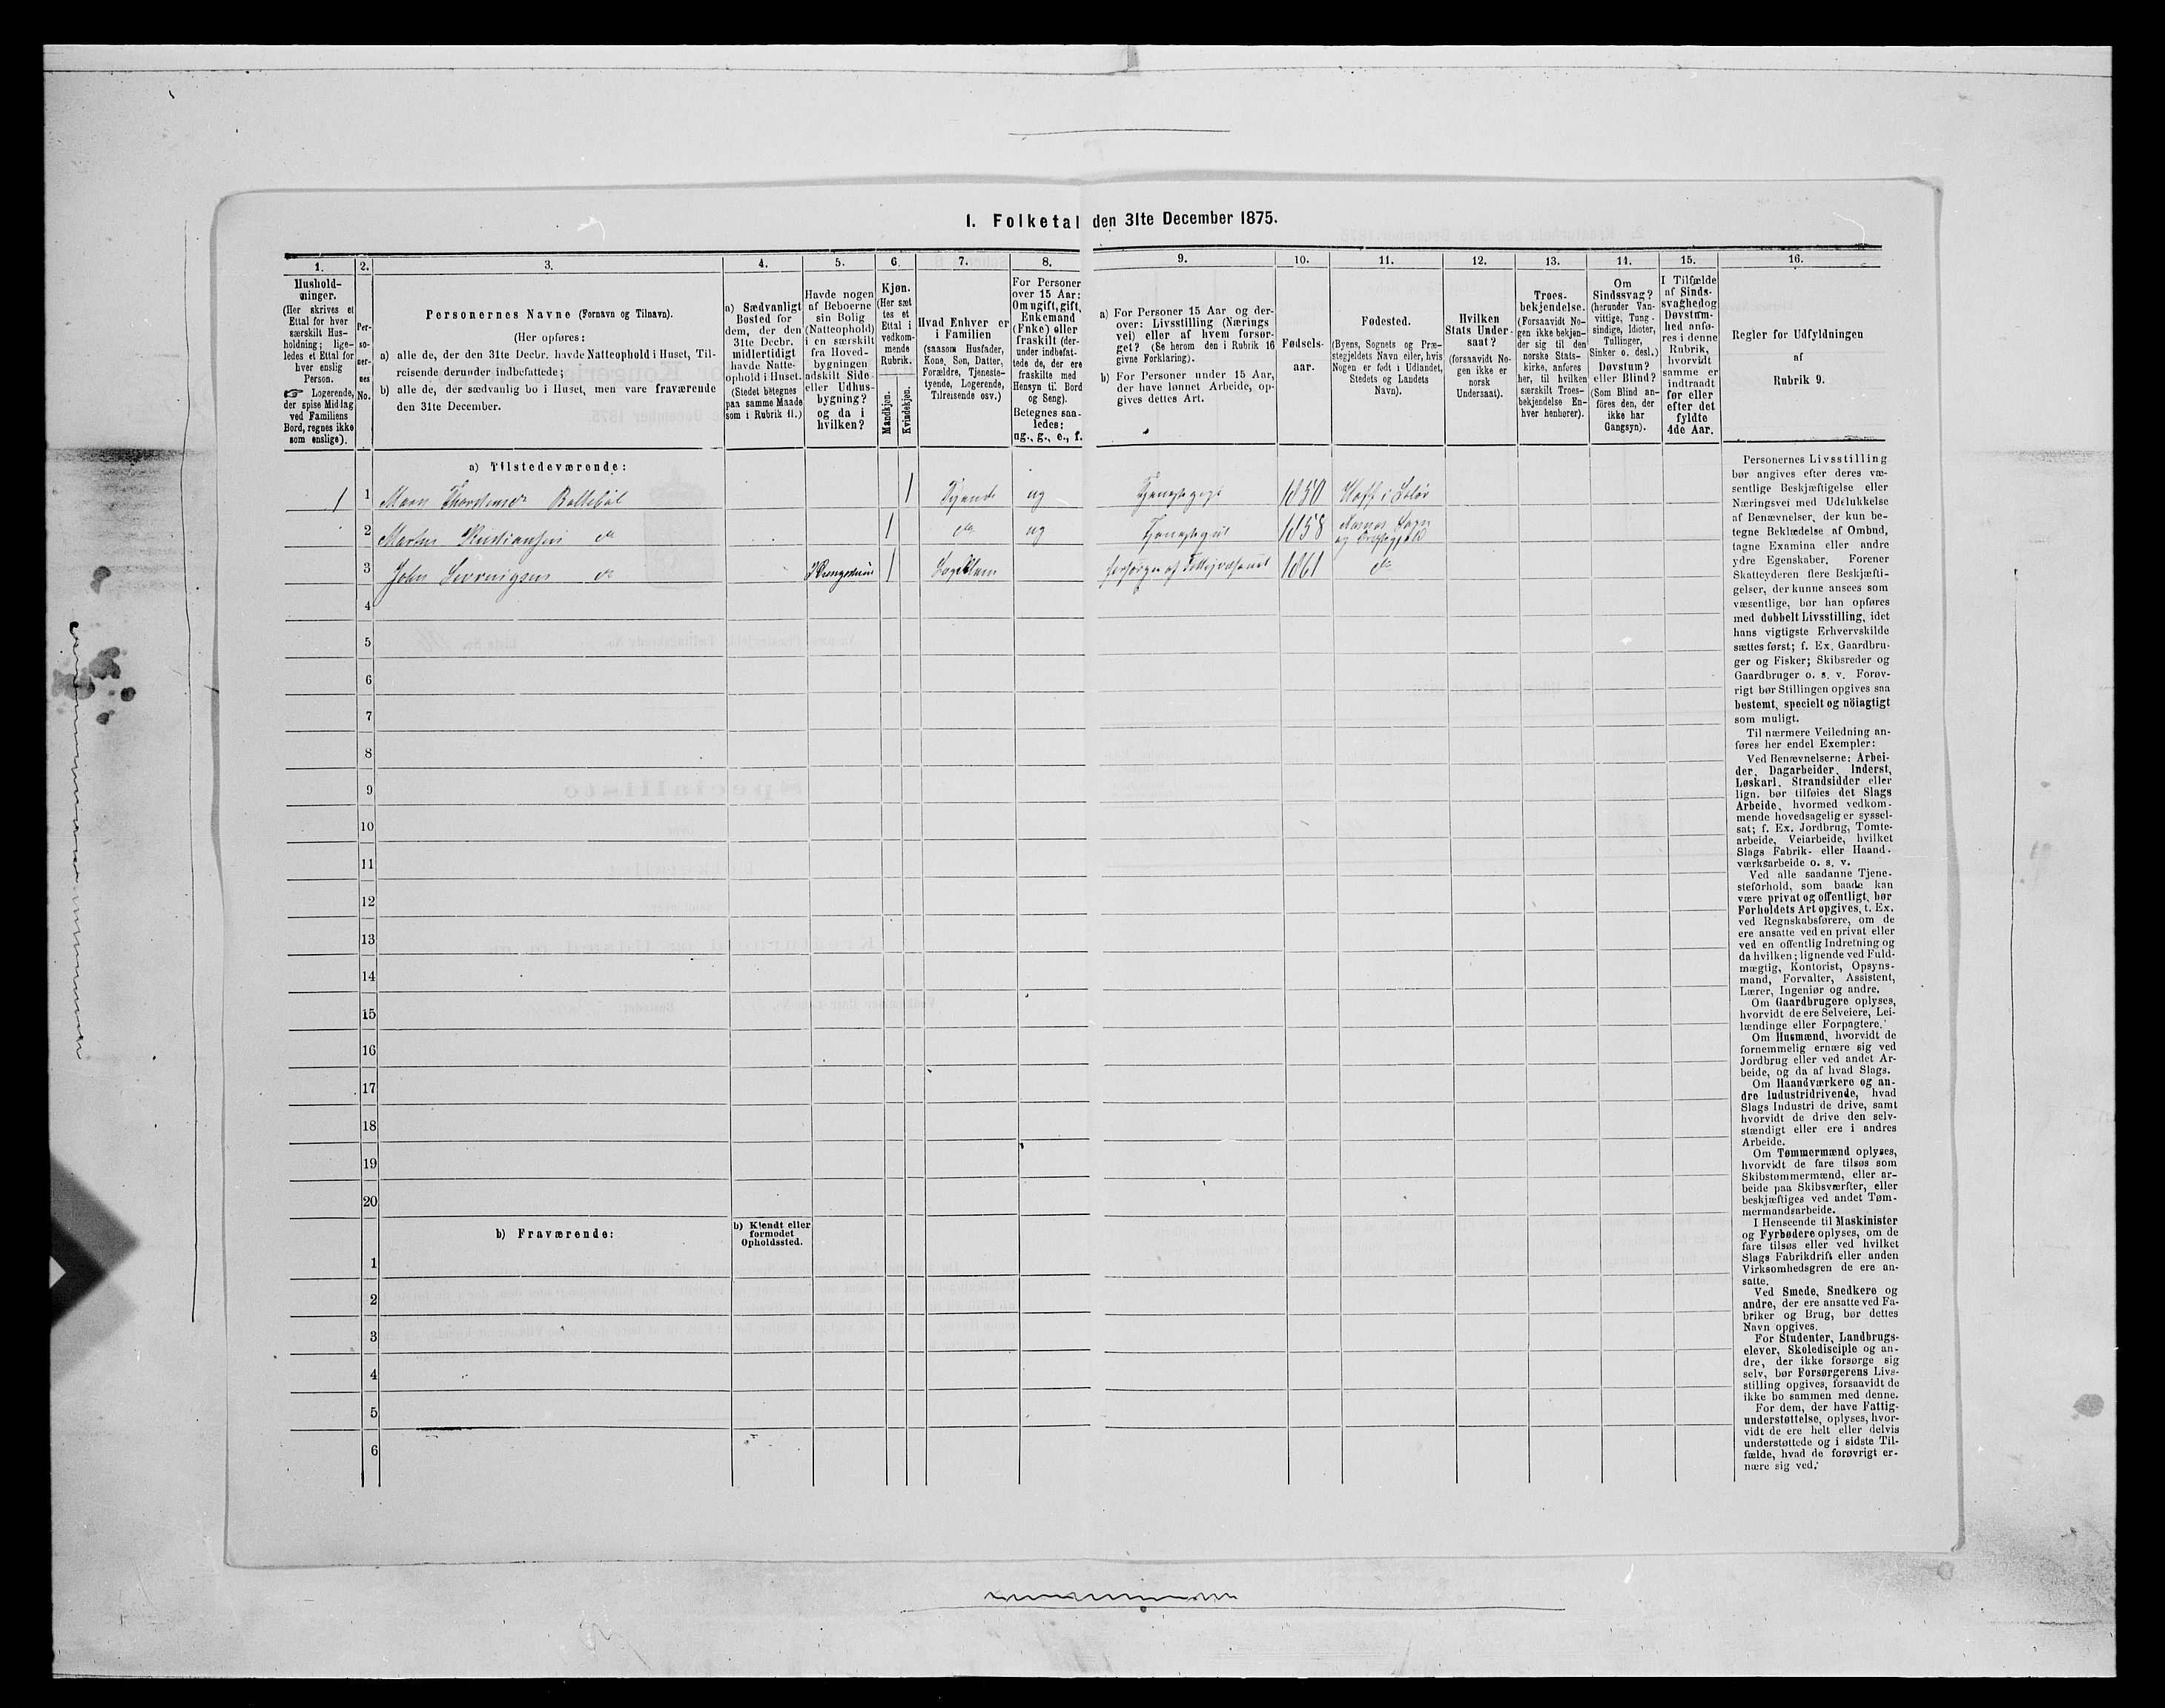 I. Folketal den 31te December 1875.
1. 2. 3. 4. 5. 6. 7. 8. 9. 10. 11. 12. 13. 14. 15. 16.
Hushold-
ninger.
(Her skrives et
Ettal for hver
særskilt Hus-
holdning; lige-
ledes et Ettal for
hver enslig
Person.
☞ Logerende,
der spise Middag
ved Familiens
Bord, regnes ikke
som enslige).
Per-
so-
ner-
nes
No.
Personernes Navne (Fornavn og Tilnavn).
(Her opføres:
a) alle de, der den 31te Decbr. havde Natteophold i Huset, Til-
reisende derunder indbefattede;
b) alle de, der sædvanlig bo i Huset, men vare fraværende
den 31te December.
a) Sædvanligt
Bosted for
dem, der den
31te Decbr.
midlertidigt
havde Natte-
ophold i Huset.
(Stedet betegnes
paa samme Maade
som i Rubrik 11.)
Havde nogen
af Beboerne
sin Bolig
(Natteophold)
i en særskilt
fra Hoved-
bygningen
adskilt Side-
eller Udhus-
bygning?
og da i
hvilken?
Kjøn.
(Her sæt
tes et
Ettal i
vedkom-
mende
Rubrik.
Mandkjøn.
Kvindekjøn.
Hvad Enhver er
i Familien
(saasom Husfader,
Kone, Søn, Datter,
Forældre, Tjeneste-
tyende, Logerende,
Tilreisende osv.)
For Personer
over 15 Aar:
Om ugift, gift,
Enkemand
(Enke) eller
fraskilt (der-
under indbefat-
tede de, der ere
fraskilte med
Hensyn til Bord
og Seng).
Betegnes saa-
ledes:
ug., g., e., f.
a) For Personer 15 Aar og der-
over: Livsstilling (Nærings
vei) eller af hvem forsør-
get? (Se herom den i Rubrik 16
givne Forklaring).
b) For Personer under 15 Aar,
der have lønnet Arbeide, op-
gives dettes Art.
Fødsels-
aar.
Fødested.
(Byens, Sognets og Præ-
stegjeldets Navn eller, hvis
Nogen er født i Udlandet,
Stedets og Landets
Navn).
Hvilken
Stats Under-
saat?
(forsaavidt No-
gen ikke er
norsk
Undersaat).
Troes-
bekjendelse.
(Forsaavidt No-
gen ikke bekjen-
der sig til den
norske Stats-
kirke, anføres
her, til hvilken
særskilt Troes-
bekjendelse En-
hver henhører).
Om
Sindssvag?
(herunder Van-
vittige, Tung-
sindige, Idioter,
Tullinger,
Sinker o. desl.)
Døvstum?
eller Blind?
(Som Blind an-
föres den, der
ikke har
Gangsyn).
I Tilfælde
af Sinds-
svaghed og
Døvstum-
hed anfø-
res i denne
Rubrik,
hvorvidt
samme er
indtraadt
før eller
efter det
fyldte
4de Aar.
Regler for Udfyldningen
af
Rubrik 9.
a) Tilstedeværende:
1 1 Maren 1 Tyende ug 1850 Hoff i Solør
2 Martin Kristiansen do 1 do ug Tjenestegut 1858
3 John do 1 1861 do
4
5
6
7
8
9
10
11
12
13
14
15
16
17
18
19
20
b) Fraværende:
b) Kjendt eller
formodet
Opholdssted.
1
2
3
4
5
6
Personernes Livsstilling
bør angives efter deres væ-
sentlige Beskjæftigelse eller
Næringsvei med Udelukkelse
af Benævnelser, der kun be-
tegne Beklædelse af Ombud,
tagne Examina eller andre
ydre Egenskaber. Forener
Skatteyderen flere Beskjæfti-
gelser, der kunne ansees som
væsentlige, bør han opføres
med dobbelt Livsstilling, idet
hans vigtigste Erhvervskilde
sættes først; f. Ex. Gaardbru-
ger og Fisker; Skibsreder og
Gaardbruger o. s. v. Forøv-
rigt bør Stillingen opgives saa
bestemt, specielt og nöiagtigt
som muligt.
Til nærmere Veiledning an-
føres her endel Exempler:
Ved Benævnelserne: Arbei-
der, Dagarbeider, Inderst,
Løskarl, Strandsidder eller
lign. bør tilføies det Slags
Arbeide, hvormed vedkom-
mende hovedsagelig er syssel-
sat; f. Ex. Jordbrug, Tomte-
arbeide, Veiarbeide, hvilket
Slags Fabrik- eller Haand-
værksarbeide o. s. v.
Ved alle saadanne Tjene-
steforhold, som baade kan
være privat og offentligt, bør
Forholdets Art opgives, t. Ex.
ved Regnskabsførere, om de
ere ansatte ved en privat eller
ved en offentlig Indretning og
da hvilken; lignende ved Fuld-
mægtig, Kontorist, Opsyns-
mand, Forvalter, Assistent,
Lærer, Ingeniør og andre.
Om Gaardbrugere oplyses,
hvorvidt de ere Selveiere, Lei-
lændinge eller Forpagtere.
Om Husmænd, hvorvidt de
fornemmelig ernære sig ved
Jordbrug eller ved andet Ar-
beide, og da af hvad Slags.
Om Haandværkere og an-
dre Industridrivende, hvad
Slags Industri de drive, samt
hvorvidt de drive den selv-
stændigt eller ere i andres
Arbeide.
Om Tømmermænd oplyses,
hvorvidt de fare tilsøs som
Skibstømmermænd, eller ar-
beide paa Skibsværfter, eller
beskjæftiges ved andet Tøm-
mermandsarbeide.
I Henseende til Maskinister
og Fyrbødere oplyses, om de
fare tilsøs eller ved hvilket
Slags Fabrikdrift eller anden
Virksomhedsgren de ere an-
satte.
Ved Smede, Snedkere og
andre, der ere ansatte ved Fa-
briker og Brug, bør dettes
Navn opgives.
For Studenter, Landbrugs-
elever, Skoledisciple og an-
dre, der ikke forsørge sig
selv, bør Forsørgerens Livs-
stilling opgives, forsaavidt de
ikke bo sammen med denne.
For dem, der have Fattig-
understøttelse, oplyses, hvor-
vidt de ere helt eller delvis
understøttede og i sidste Til-
fælde, hvad de forøvrigt er-
nære sig ved.